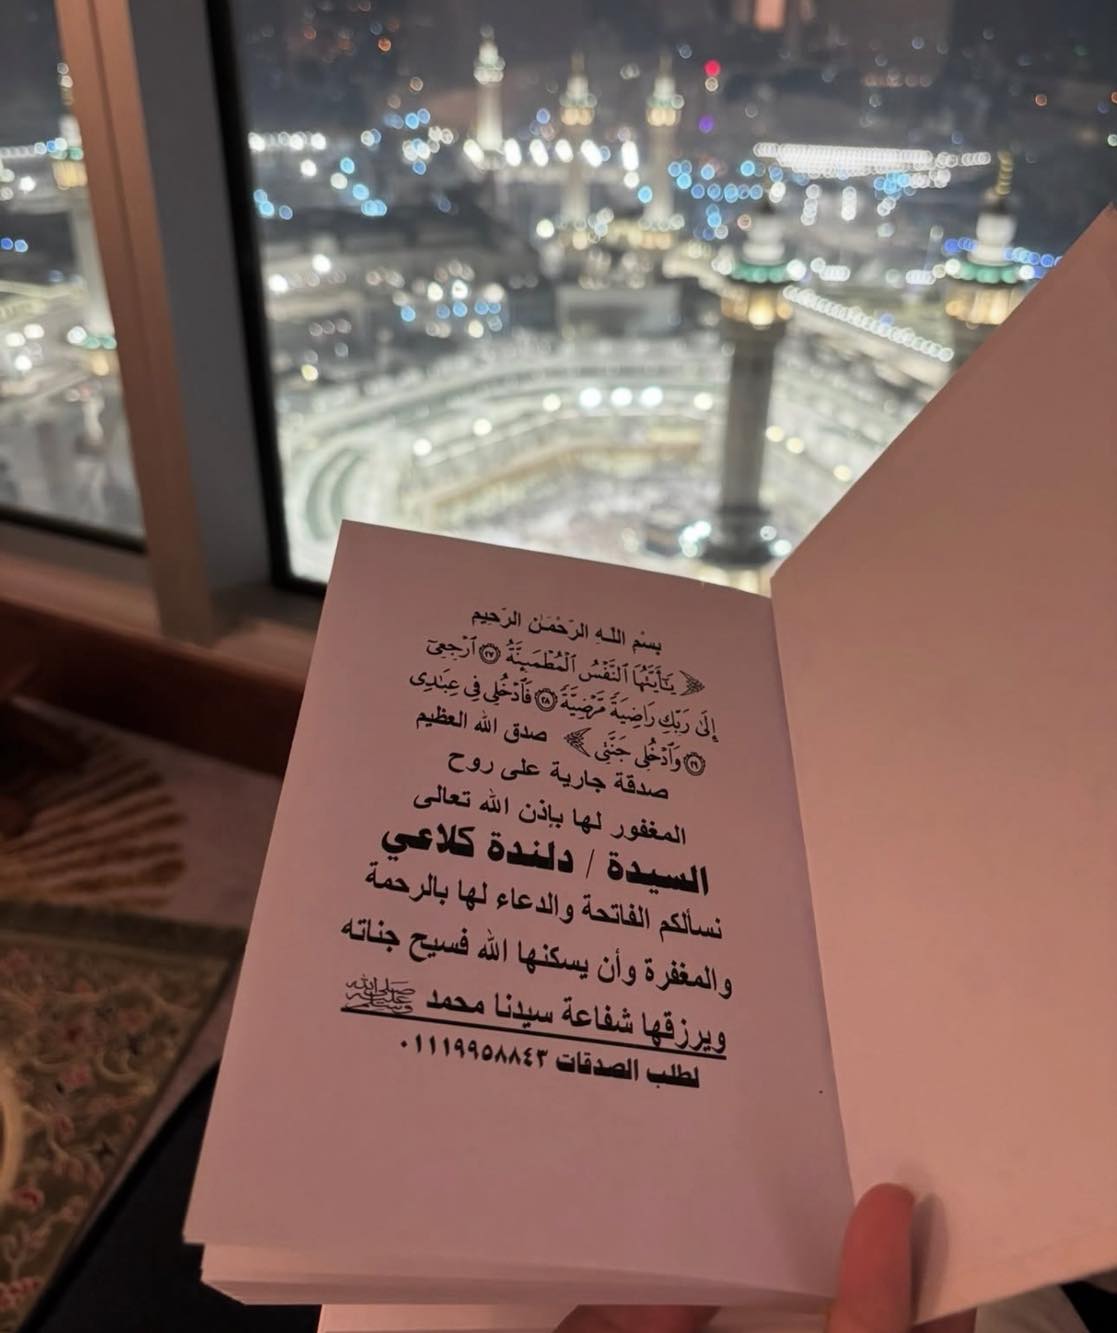 بسْم اللَّـهِ الرَّحْمَـٰن الرَّحِيم
﴿ يَـٰٓأَيَّتُهَا ٱلنَّفْسُ ٱلْمُطْمَئِنَّةُ ۝٢٧ ٱرْجِعِىٓ
إِلَىٰ رَبِّكِ رَاضِيَةً مَّرْضِيَّةً ۝٢٨ فَٱدْخُلِى فِى عِبَـٰدِى
۝٢٩ وَٱدْخُلِى جَنَّتِى ﴾ صدق الله العظيم
صدقة جارية على روح
المغفور لها بإذن الله تعالى
السيدة / دلندة كلاعي
نسألكم الفاتحة والدعاء لها بالرحمة
والمغفرة وأن يسكنها الله فسيح جناته
ويرزقها شفاعة سيدنا محمد ﷺ
لطلب الصدقات ٠١١١٩٩٥٨٨٤٣